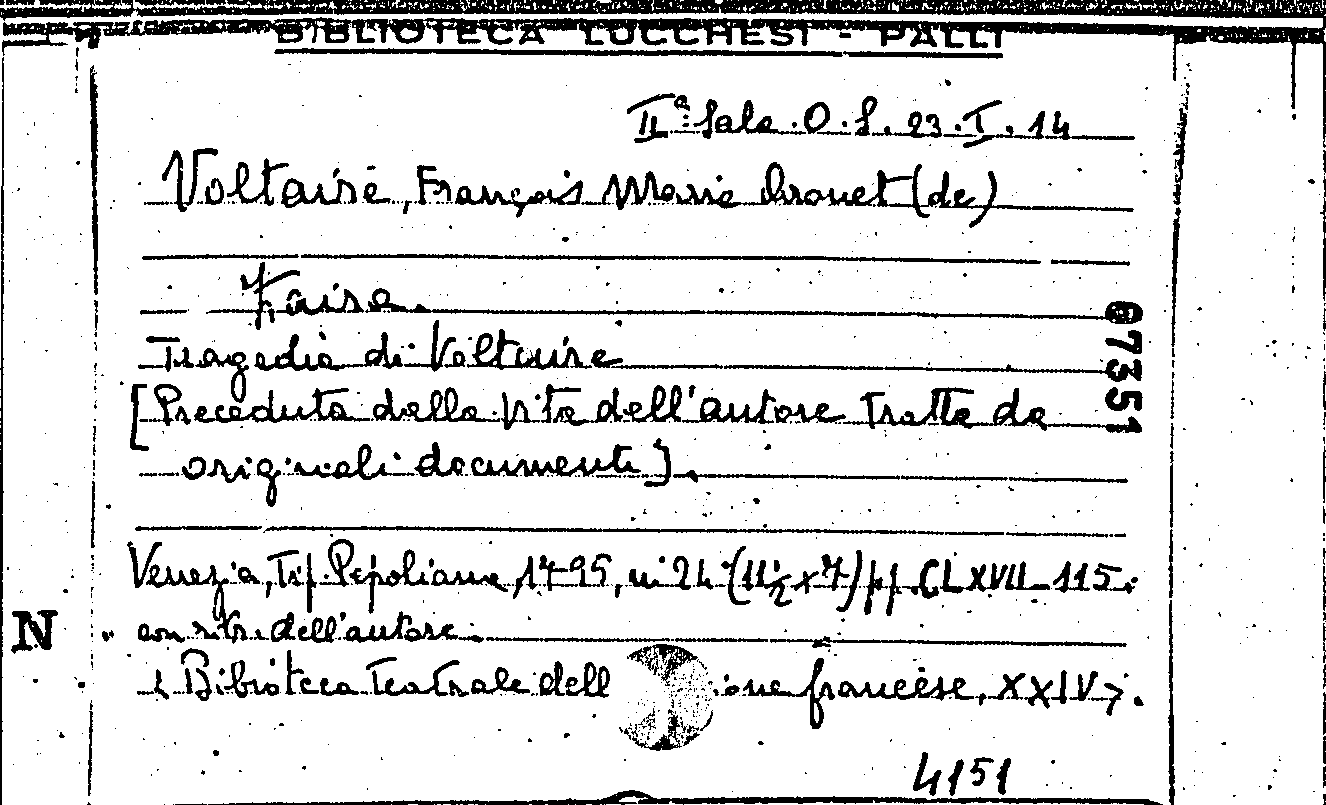 BIBLIOTECA LUCCHESI - PALLI
IIª Sala. O. S. 23. I. 14
Voltaire, François Marie Arouet (de)
Zaira.
Tragedia di Voltaire
[Preceduta dalla vita dell'autore tratta da
originali documenti].
Venezia, Tip. Pepoliana, 1795, in 24 (11½ x 7) pp. CLXVII-115.
con ritr. dell'autore.
< Biblioteca Teatrale dell ione francese, XXIV >.
4151
07351
N